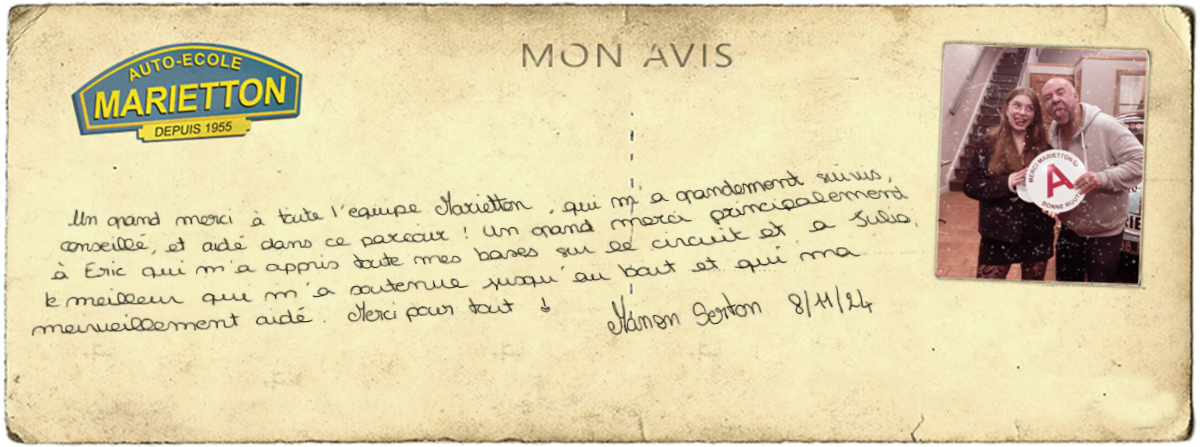 AUTO-ECOLE
MARIETTON
DEPUIS 1955
MON AVIS
Un grand merci à toute l'equipe Marietton, qui m'a grandement suivis,
conseillé, et aidé dans ce parcour ! Un grand merci principalement
à Eric qui m'a appris toute mes bases sur le circuit et a Julio,
le meilleur qui m'a soutenue jusqu'au bout et qui ma
merveillement aidé. Merci pour tout !
Manon Serton 8/11/24
MERCI MARIETTON
A
BONNE ROUTE